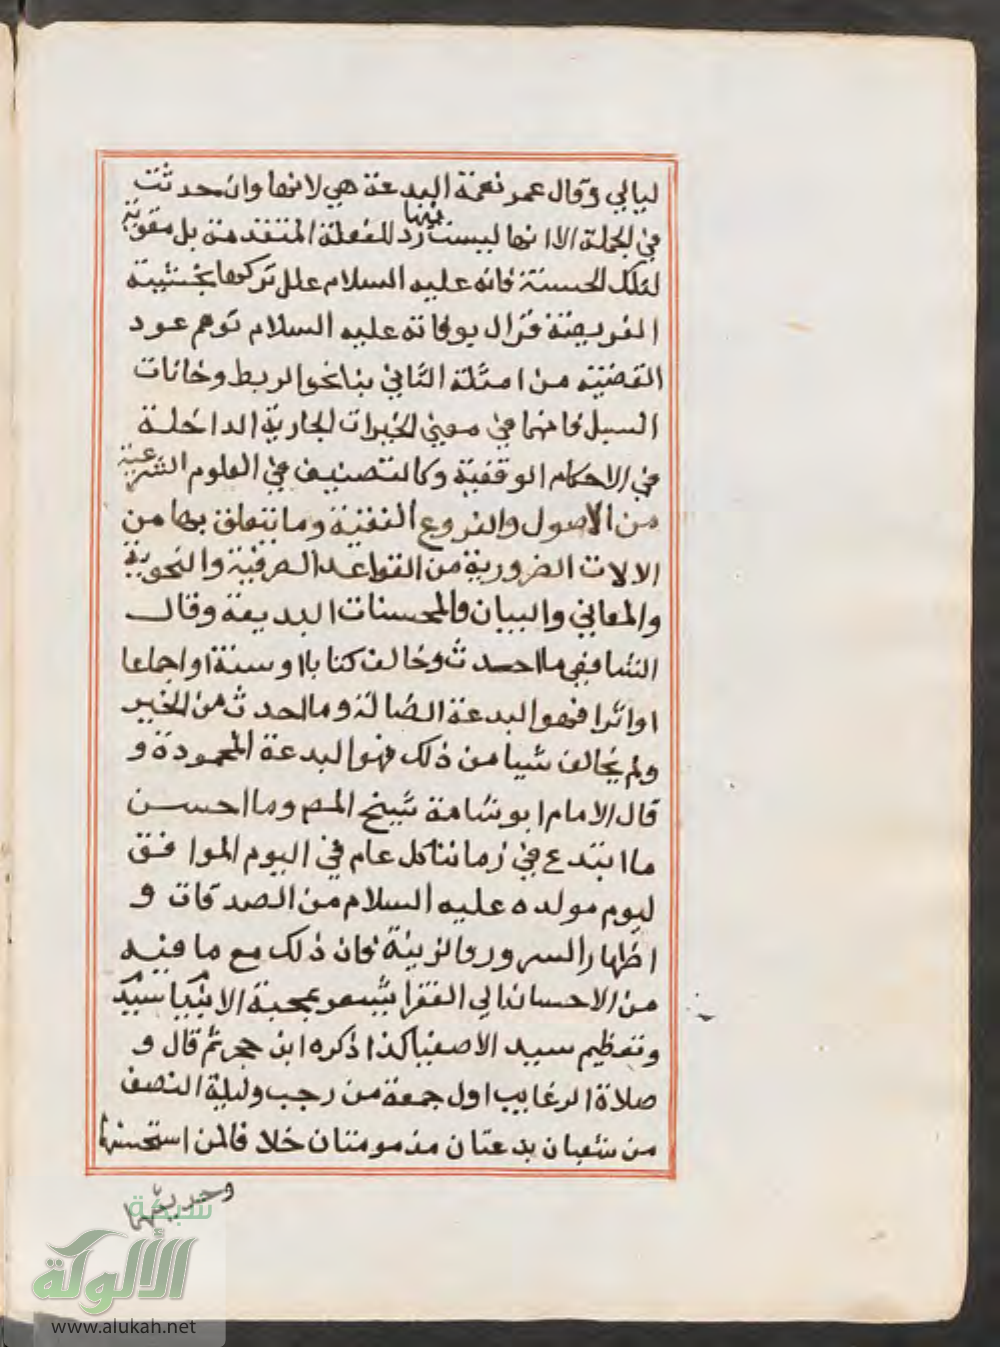 ليالي وقال عمر نعمة البدعة هي لانها وان حدثت
في الجملة الا انها ليست فيها رد للفعلة المتقدمة بل مقوية
لتلك الحسنة فانه عليه السلام علل تركها بخشية
الفريضة فزال بوفاته عليه السلام توهم عود
القضية من امثلة الثاني بنا نحو الربط وخانات
السبل فانها في معني الخيرات الجارية الداخلة
في الاحكام الوقفية وكالتصنيف في العلوم الشرعية
من الاصول والفروع النقية وما يتعلق بها من
الالات الضرورية من القواعد الصرفية والنحوية
والمعاني والبيان والمحسنات البديعة وقال
الشافعي ما احدث وخالف كتابا او سنة او اجماعا
او اثرا فهو البدعة الضالة وما احدث من الخير
ولم يخالف شيا من ذلك فهو البدعة المحمودة و
قال الامام ابو شامة شيخ المص وما احسن
ما ابتدع في زماننا كل عام في اليوم الموافق
ليوم مولده عليه السلام من الصدقات و
اظهار السرور والزينة فان ذلك مع ما فيه
من الاحسان الي الفقرا يشعر بمحبة الانبيا
وتعظيم سيد الاصفيا كذا ذكره ابن حجر ثم قال و
صلاة الرغايب اول جمعة من رجب وليلة النصف
من شعبان بدعتان مذمومتان خلافا لمن استحسنها
شبكة
الألوكة
www.alukah.net